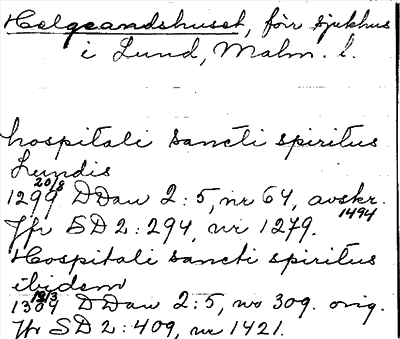 Helgeandshuset, förr sjukhus
i Lund, Malm. l.
hospitali sancti spiritus
Lundis
1299 20/8 DDan 2:5, nr 64, avskr. 1494
Jfr SD 2:294, nr 1279.
Hospitali sancti spiritus
ibidem
1304 DDan 2:5, no 309. orig.
Jfr SD 2:409, nr 1421.